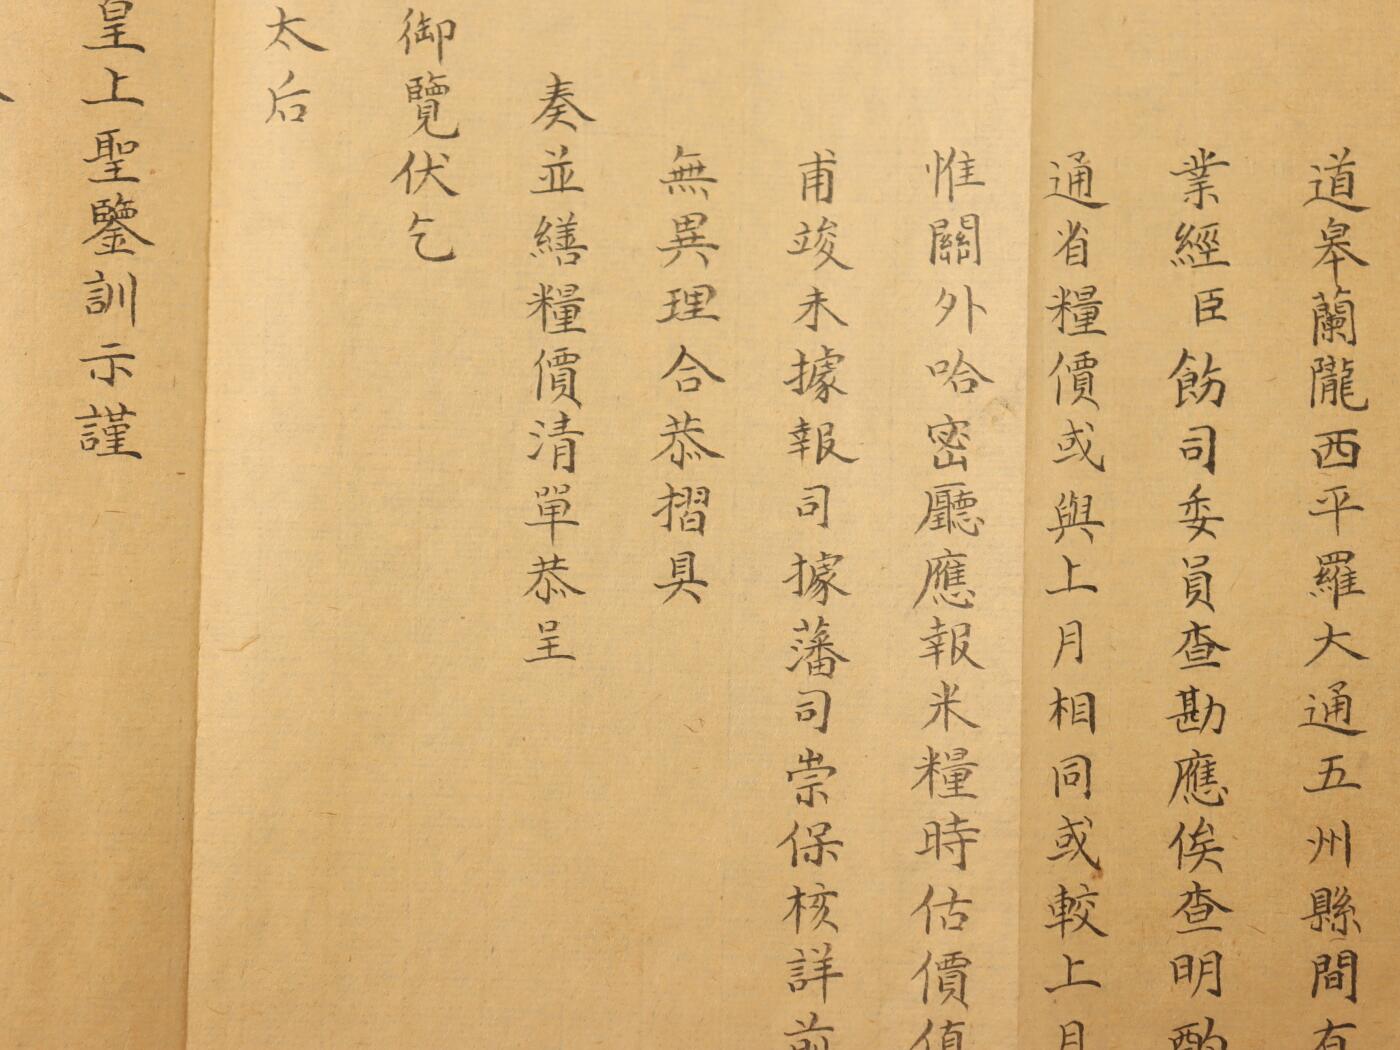 道皋蘭隴西平羅大通五州縣間有
業經臣飭司委員查勘應俟查明酌
通省糧價或與上月相同或較上月
惟關外哈密廳應報米糧時估價值
甫竣未據報司據藩司崇保核詳前
無異理合恭摺具
奏並繕糧價清單恭呈
御覽伏乞
太后
皇上聖鑒訓示謹